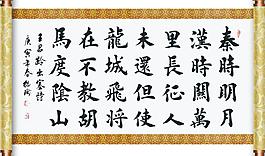 秦時明月
漢時關萬
里長征人
未還但使
龍城飛將
在不教胡
馬度陰山
王昌齡出塞詩
庚寅年春